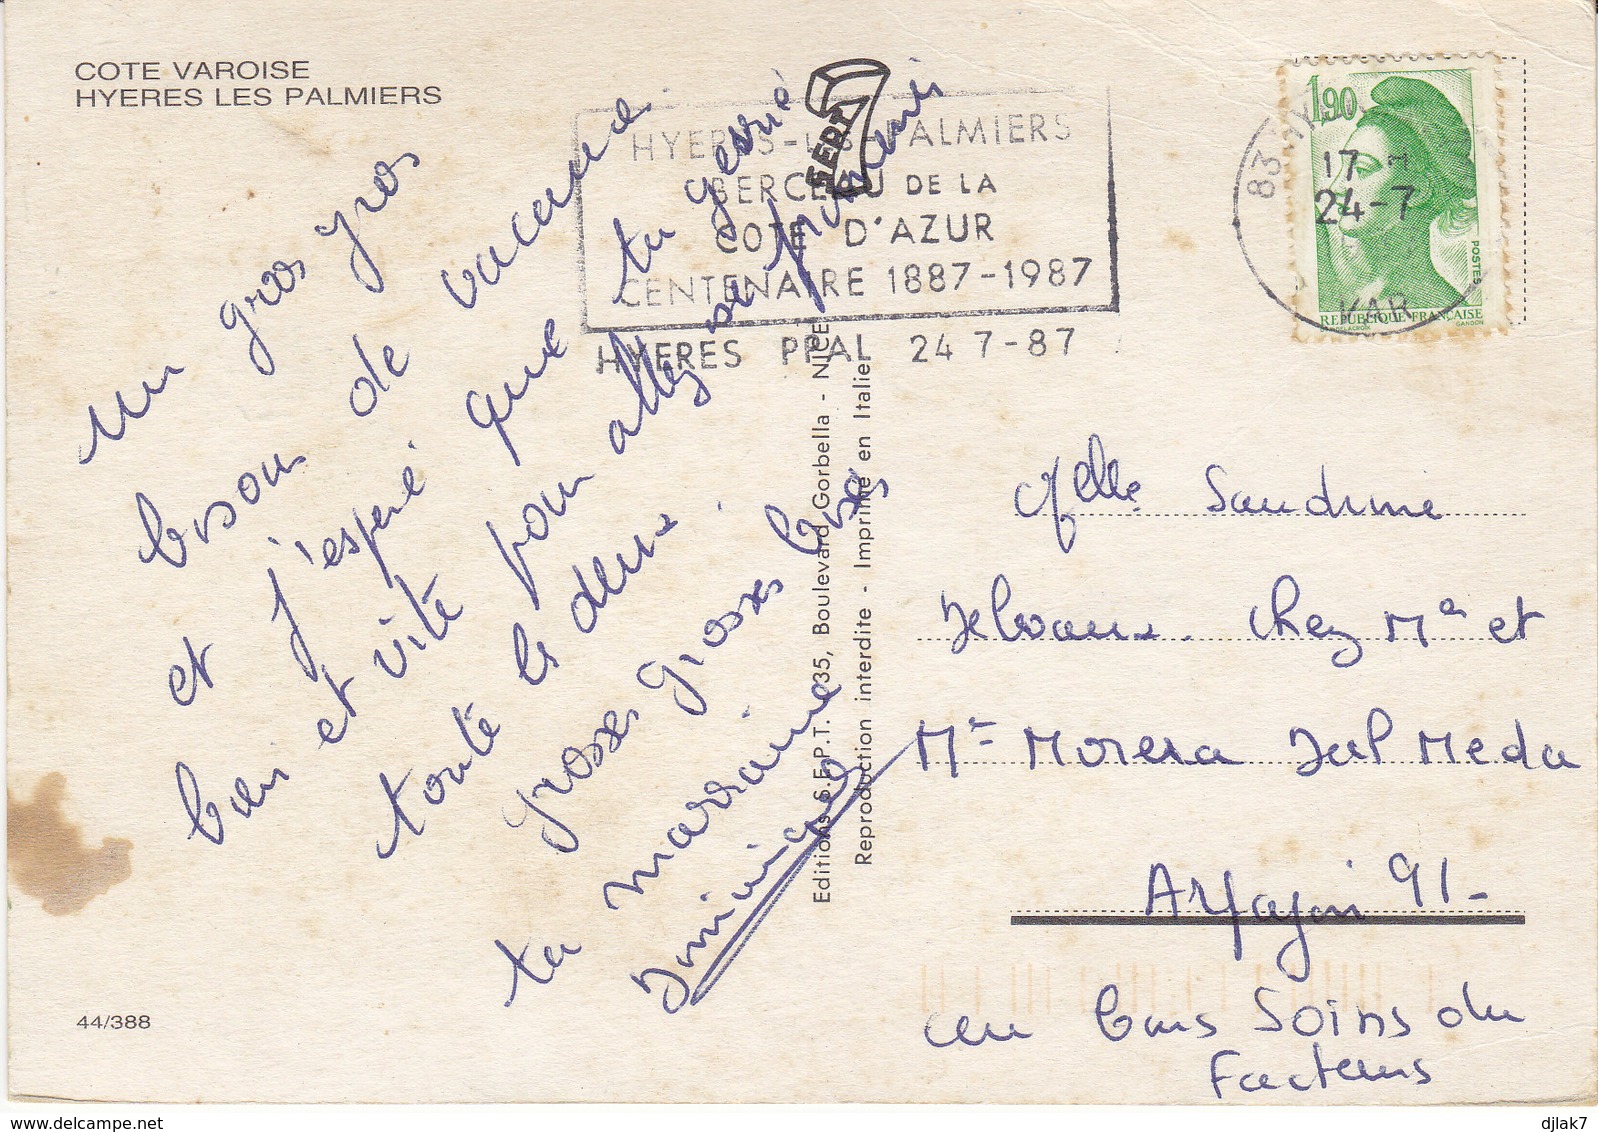 COTE VAROISE
HYERES LES PALMIERS
un gros gros
bisous de vacance
et j'espère que tu gerrié
bien et vite pour allez se promenis
toute le deux.
grosses grosses bises
ta marraine
Dominique
44/388
Editions S.E.P.T. 35, Boulevard Gorbella - NICE
Reproduction interdite - Imprimé en Italie
HYERES-LES-PALMIERS
BERCEAU DE LA
COTE D'AZUR
CENTENAIRE 1887-1987
HYERES PPAL 24 7-87
SEPT
83
17 H
24-7
VAR
1,90
POSTES
REPUBLIQUE FRANÇAISE
GANDON
Melle Sandrine
Delvaux. Chez Mr et
Me Morera
Arpajon 91-
au bons Soins du
Facteurs
djlak7